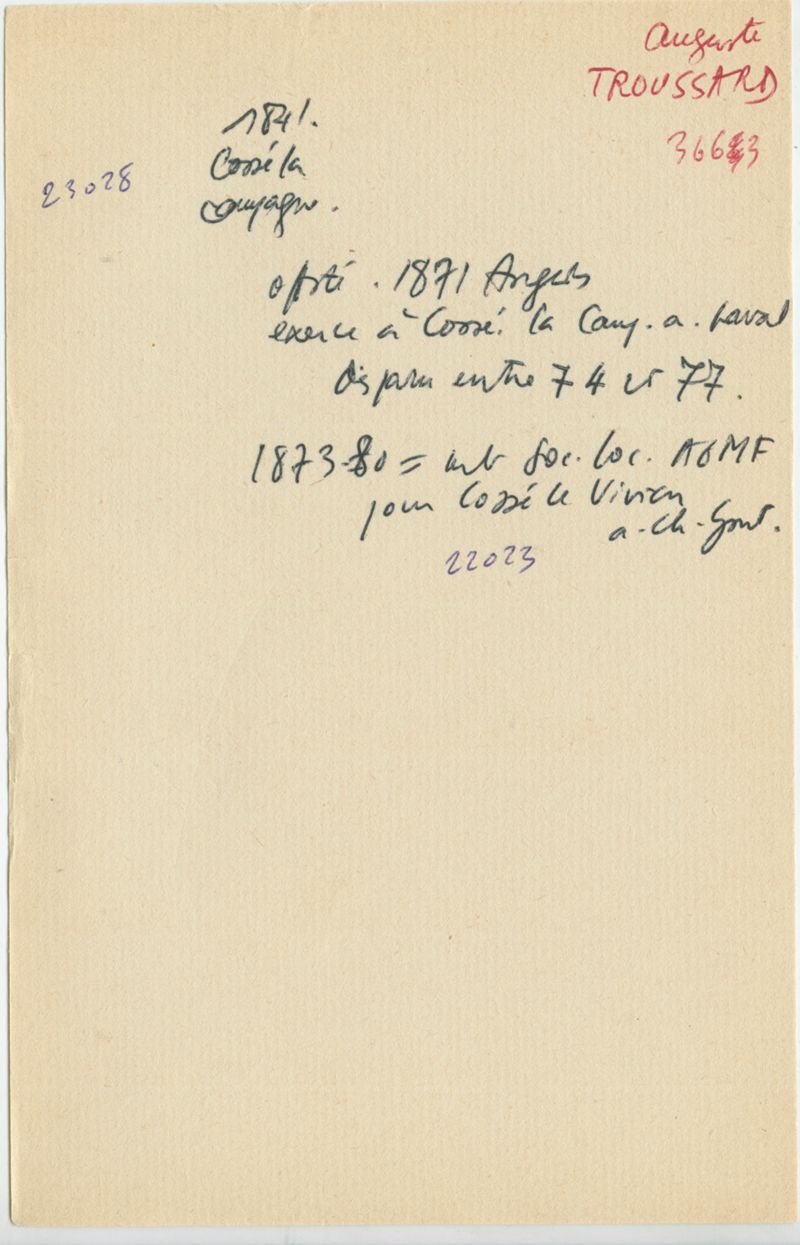 Auguste
TROUSSARD
3663
1841.
Cossé la
campagne.
23028
1871 Angers
exerce à Cossé. la Camp. a. Laval
disparu entre 74 et 77.
1873-80 = mb Soc. loc. AGMF
pour Cossé le Vivien
a. Ch. Gont.
22023